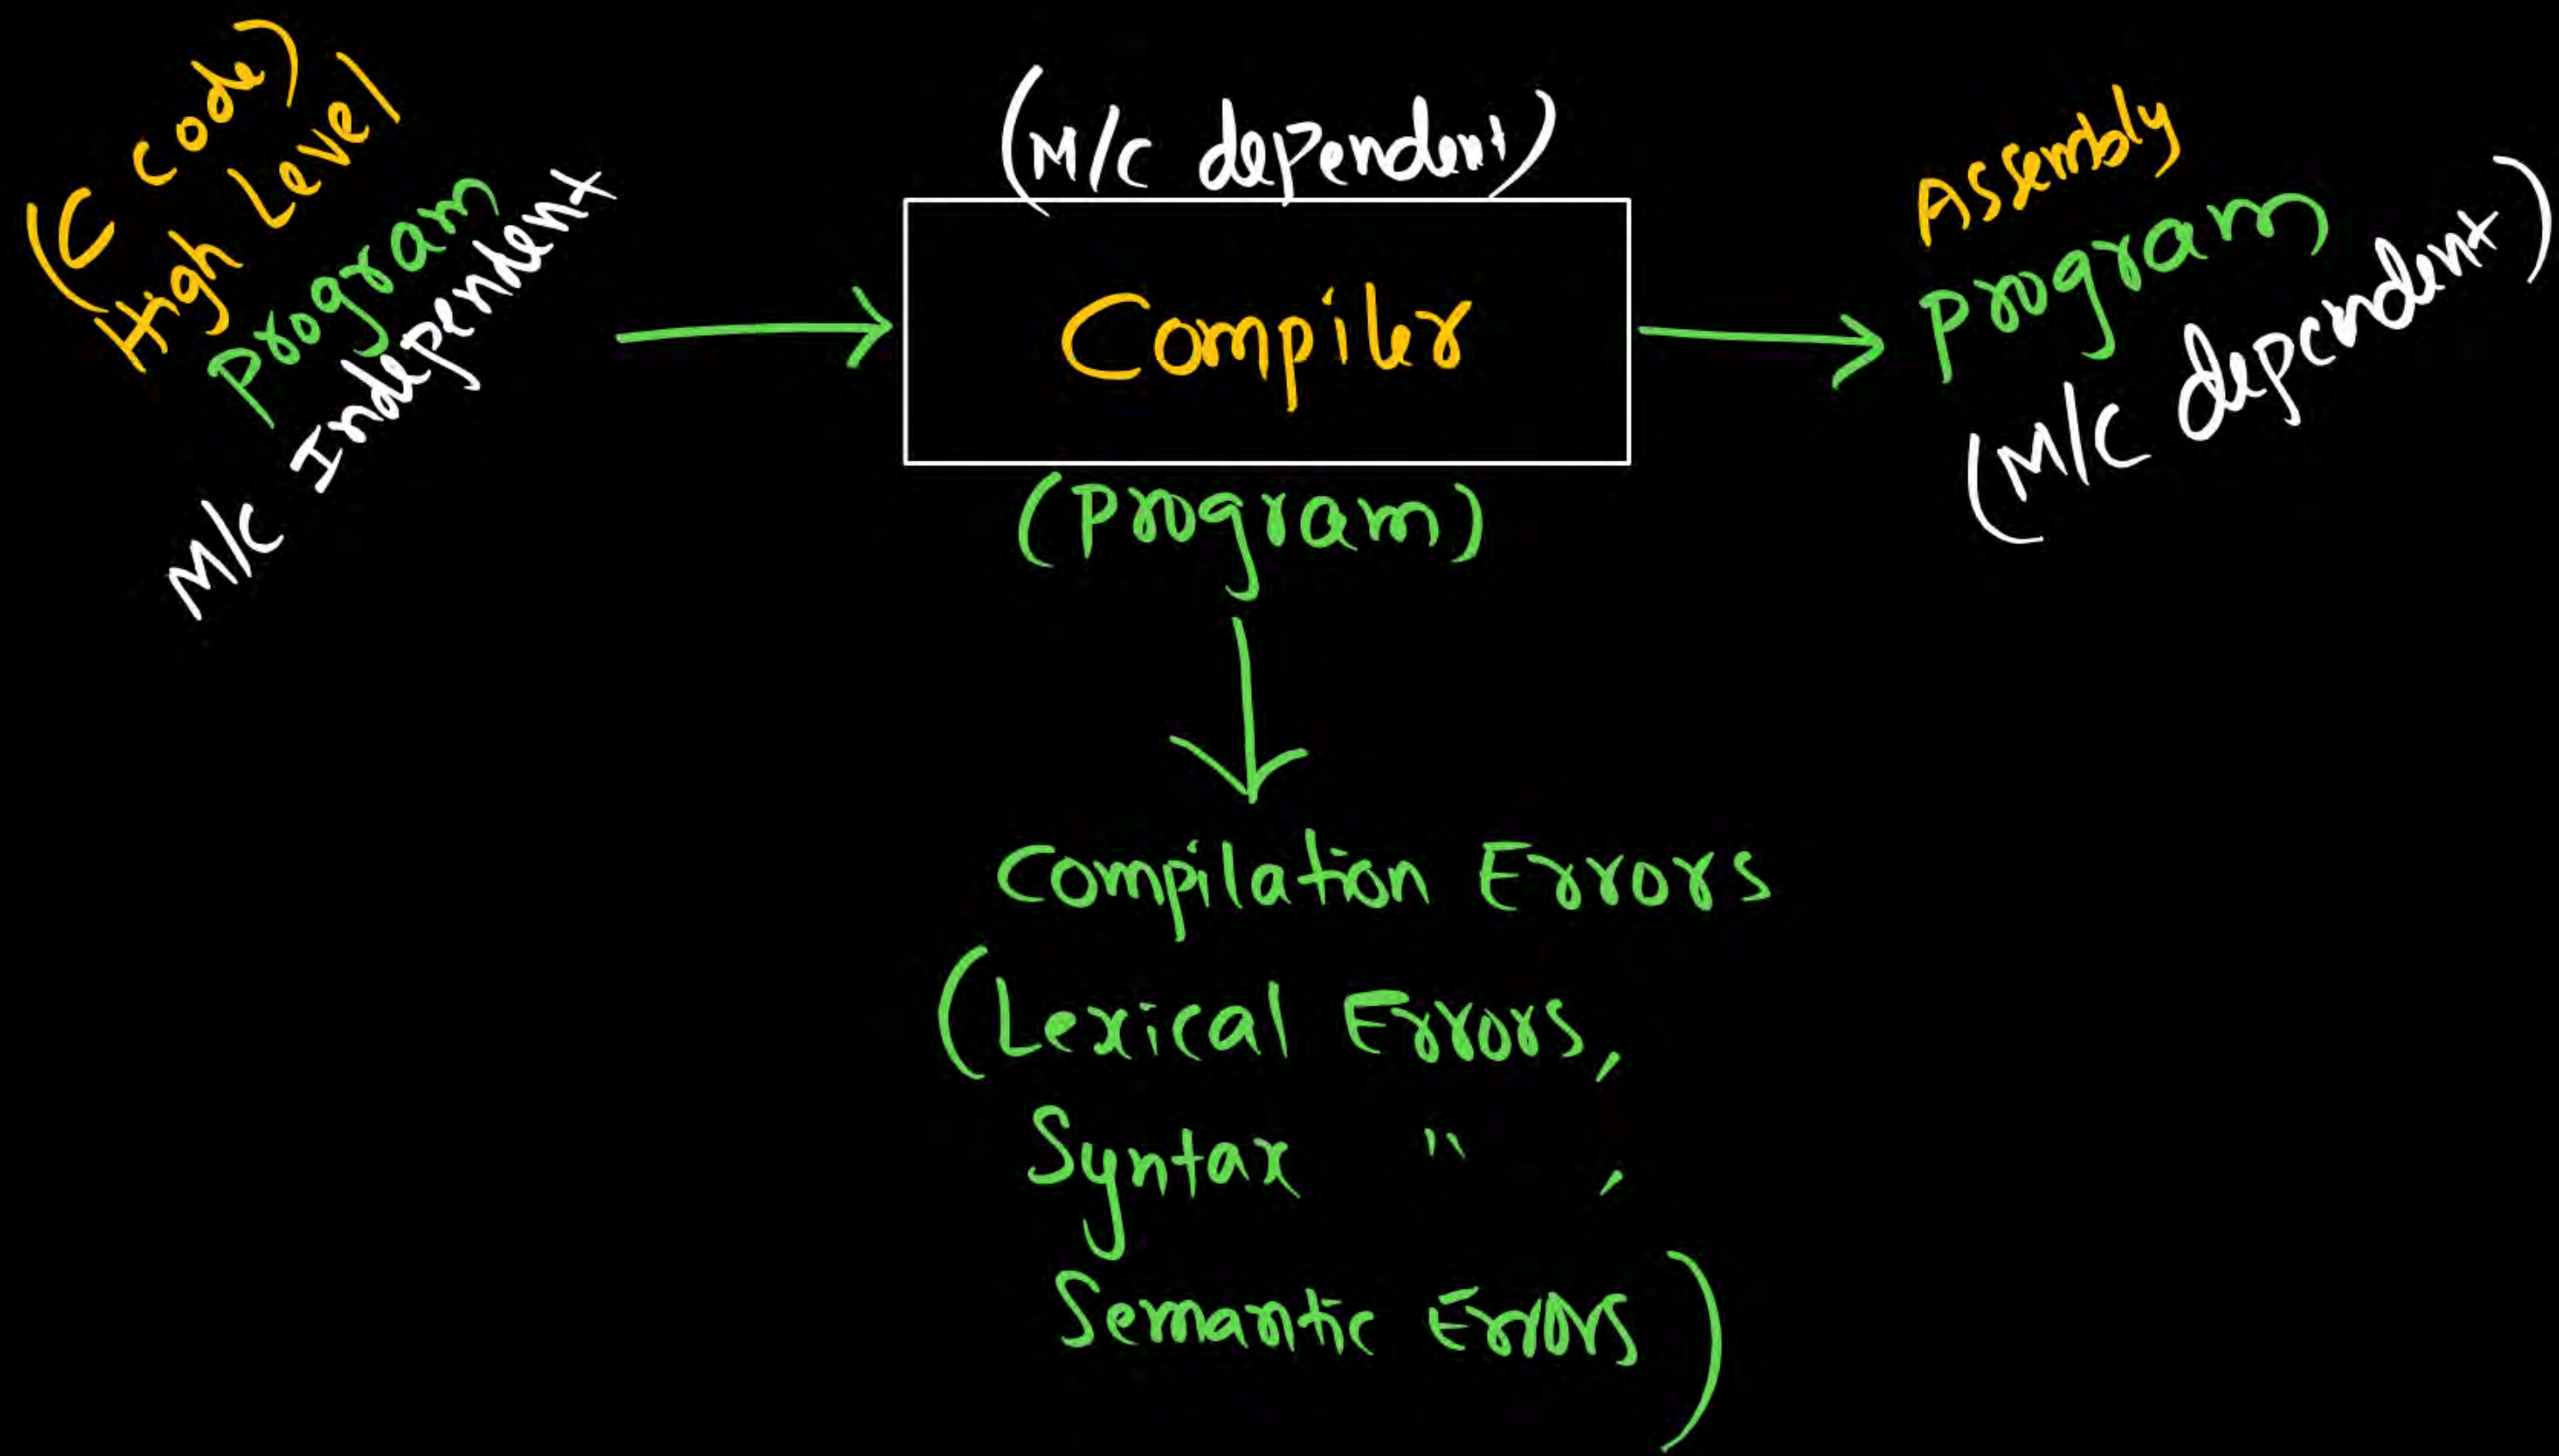 (C code)
High Level
Program
M/C Independent
(M/C dependent)
Compiler
(Program)
Assembly
Program
(M/C dependent)
Compilation Errors
(Lexical Errors,
Syntax " ,
Semantic Errors)